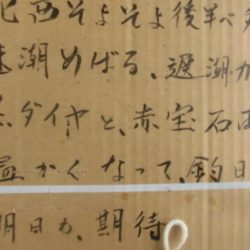 北西そよそよ後半べ
速潮めばる、遅潮カ
ダイヤと、赤宝石
温かくなって、釣日
明日も、期待。